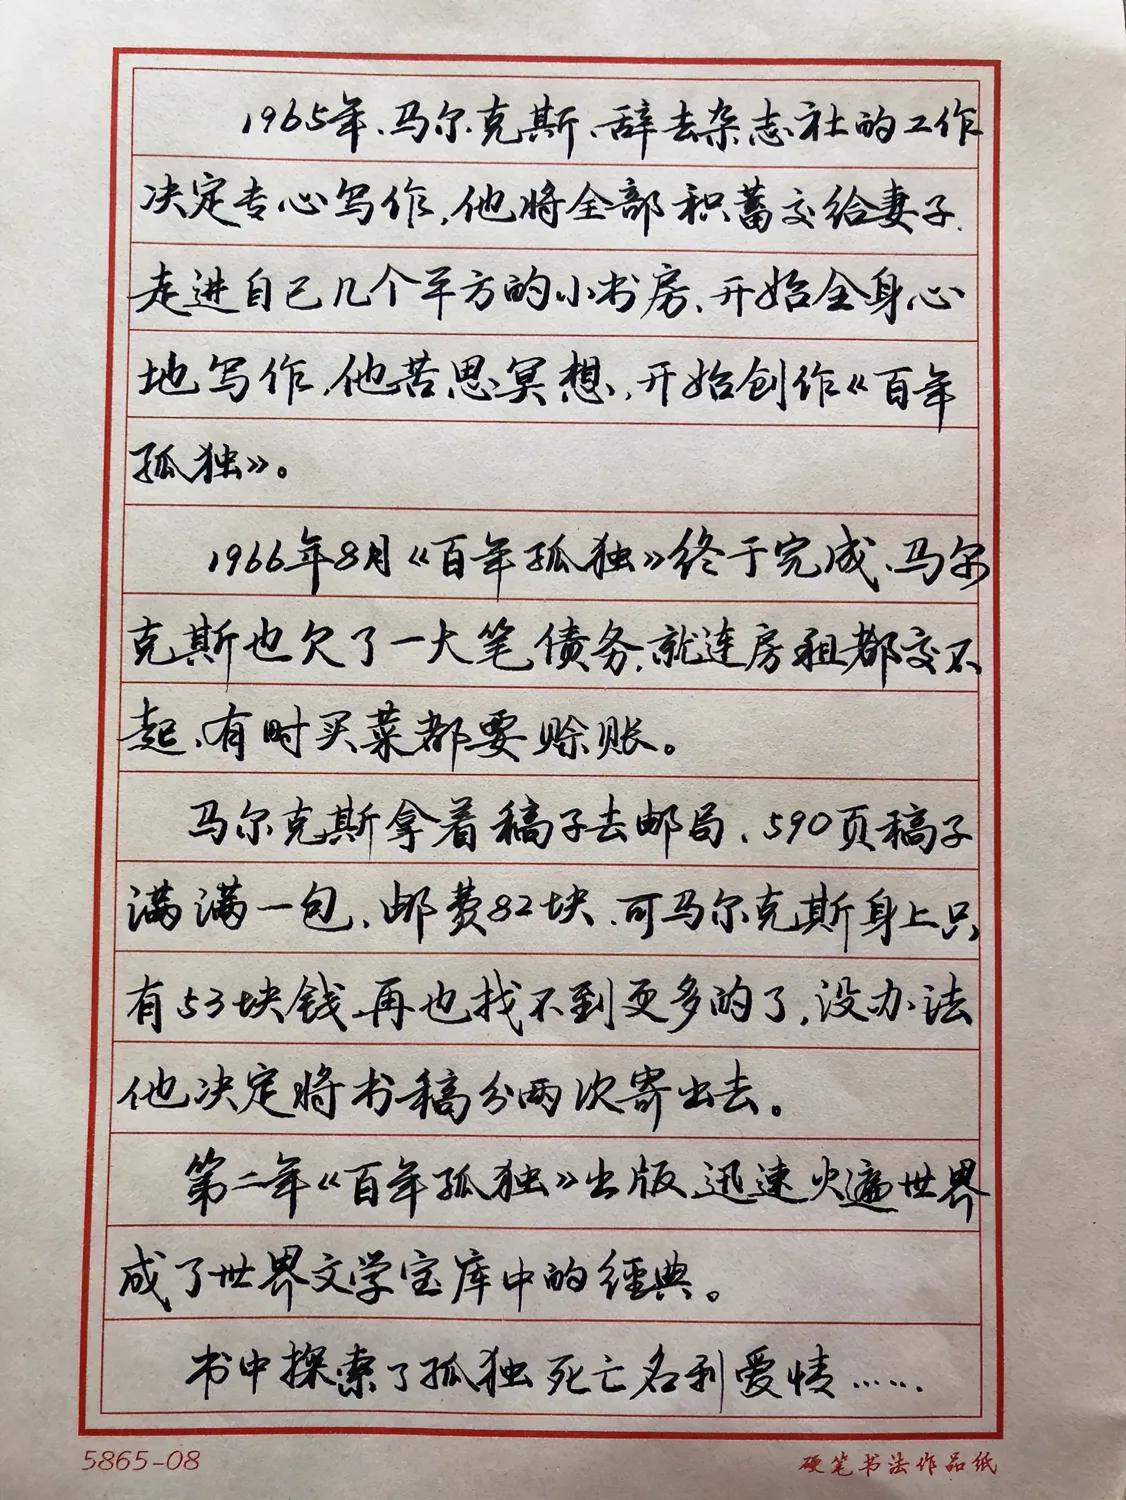 1965年、马尔克斯、辞去杂志社的工作
决定专心写作,他将全部积蓄交给妻子.
走进自己几个平方的小书房、开始全身心
地写作,他苦思冥想,开始创作《百年
孤独》。
1966年8月《百年孤独》终于完成、马尔
克斯也欠了一大笔债务,就连房租都交不
起、有时买菜都要赊账。
马尔克斯拿着稿子去邮局、590页稿子
满满一包、邮费82块、可马尔克斯身上只
有53块钱、再也找不到更多的了,没办法
他决定将书稿分两次寄出去。
第二年《百年孤独》出版、迅速火遍世界
成了世界文学宝库中的经典。
书中探索了孤独死亡名利爱情……
5865-08
硬笔书法作品纸